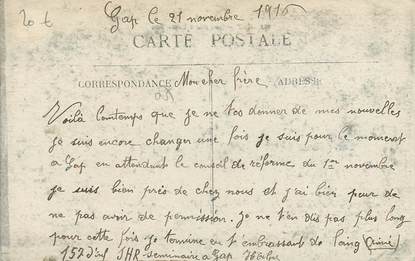 20 €
Gap le 21 novembre 1916
CARTE POSTALE
CORRESPONDANCE Mon cher frère ADRESSE
Voilà lontemps que je ne t'es donner de mes nouvelles
je suis encore changer une fois je suis pour le moment
a Gap en attendent le conseil de réforme du 1er novembre
je suis bien près de chez nous et j'ai bien peur de
ne pas avoir de permission. je ne t'en dis pas plus long
pour cette fois je termine en t embrassant de loing
157 d'inf SHR seminaire a Gap